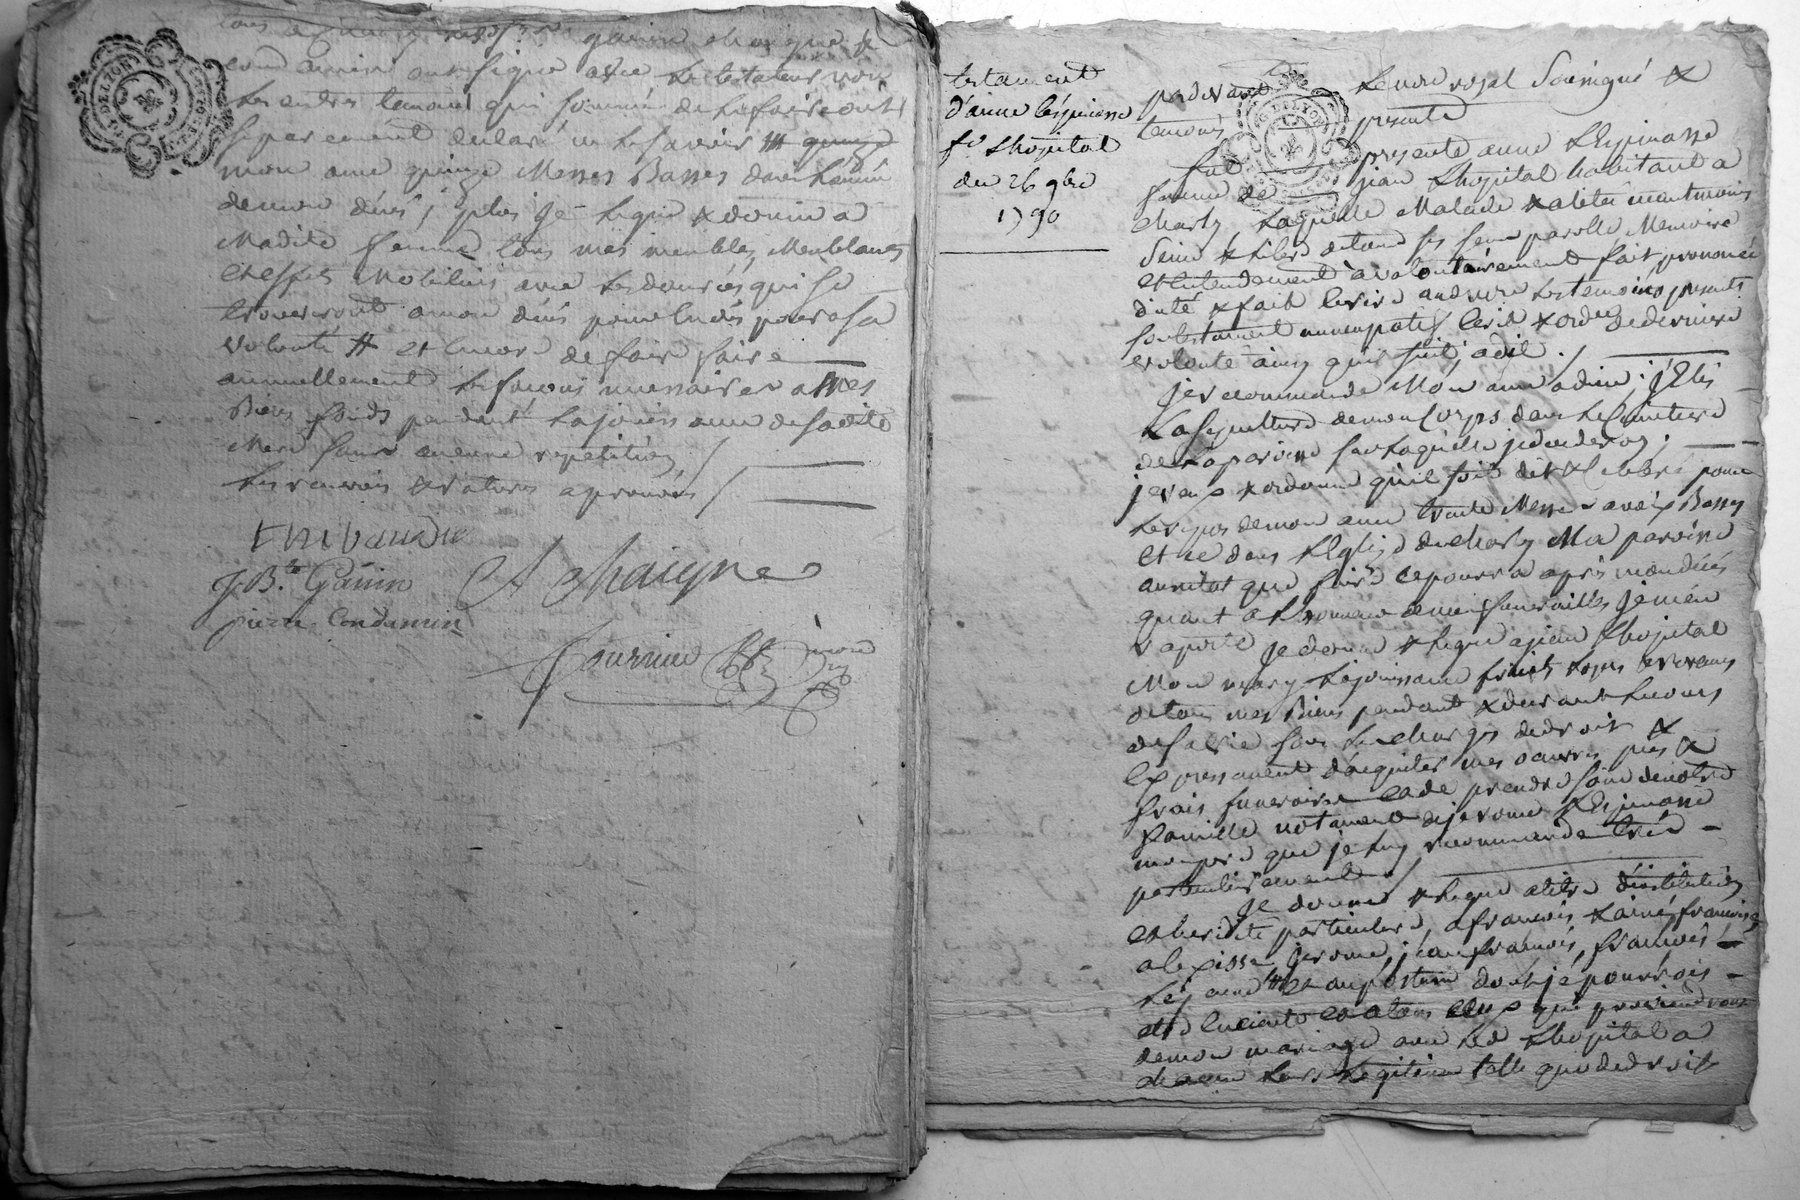 tous a Charly Ganin chaigne &
condamin ont signé avec le testateur non
les autres temoins qui sommés de le faire ont
separement declaré ne le savoir # quinze
mon ame quinze Messes Basses dans l'année
de mon décés; plus je legue & donne a
Madite femme tous mes meubles Meublants
et effets Mobiliers avec les danrées qui se
trouveront a mon décés pour en
volonté # et encore de faire faire
annuellement les façons necessaires a Mes
Biens fonds pendant la jouissance de sadite
Mere sans aucune repetition /
les renvois & ratures aprouvés /
thibaudie
J. B.te Ganin
A Chaigne
pierre Condamin
fournier
testament
d'anne Léspinasse
fe Lhopital
du 26 9bre
1790
pardevant Le no.re royal Soussigné &
temoins presents
fut presente anne LEspinasse
femme de jean Lhopital habitant a
charly, Laquelle Malade & alitée neantmoins
Saine & libre de tous ses sens parolle Memoire
et entendement a volontairement fait prononcé
dicté & fait Ecrire au no.re Les temoins presents
son testament nuncupatif Ecrit & ordce de derniere
volonté ainsy qu'il suit; a dit /
je recommande Mon ame a dieu; j'Elis
La sepulture de mon Corps dans Le Cimetiere
de la paroisse sur Laquelle je decederay;
je veux & ordonne qu'il soit dit & Celebré pour
Le repos de mon ame trente Messes a voix Basses
et ce dans L'Eglise de charly Ma paroisse
aussitot que faire ce pourra aprés mon décés
quant a L'honneur de mes funerailles je m'en
raporte je donne & legue a jean Lhopital
Mon mary La jouissance fruits & revenus
de tous mes Biens pendant & durant Le cours
de sa vie sous Les charges de droit &
Expressement d'acquiter mes oeuvres pies &
frais funeraires et de prendre soin de notre
famille notament de jerome LEspinasse
mon pere que je luy recommande trés -
particulierement /
Je donne & legue a titre d'institution
et heredité particuliere, a francois L'ainé, francoise
alexisse, jerome, jean francois, francois -
Lej et au postume dont je pourrois -
etre Enceinte et a tous Ceux qui proviendront
de mon mariage avec Led Lhopital a
chacun Leurs Legitime telle que de droit